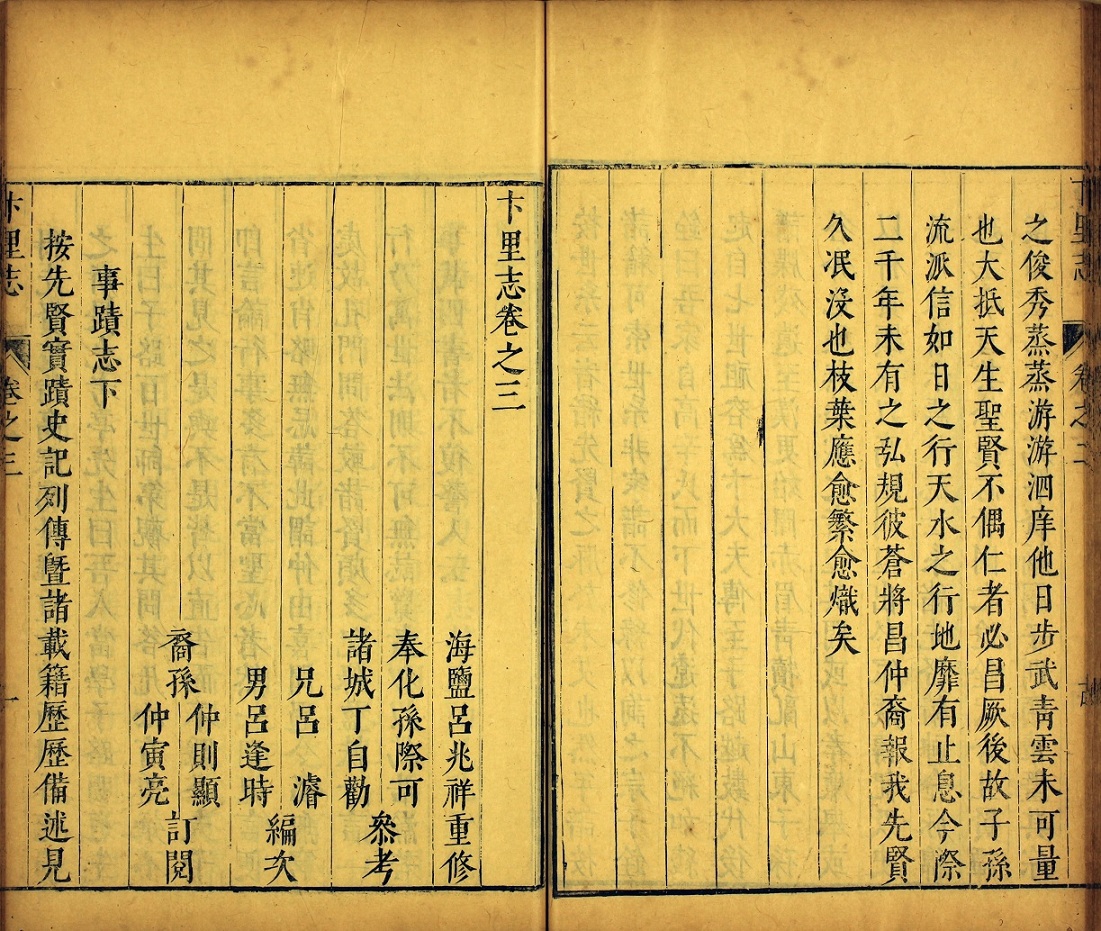 之俊秀蒸蒸游游泗庠他日步武青雲未可量
也大抵天生聖賢不偶仁者必昌厥後故子孫
流派信如日之行天水之行地靡有止息今際
二千年未有之弘規彼蒼將昌仲裔報我先賢
久冺沒也枝葉應愈繁愈熾矣
卞里志卷之三
海鹽呂兆祥重修
奉化孫際可
諸城丁自勸
叅考
兄呂濬
男呂逢時
編次
裔孫
仲則顯
仲寅亮
訂閱
事蹟志下
按先賢實蹟史記列傳曁諸載籍歷歷備述見
卞里志
卷之三
一